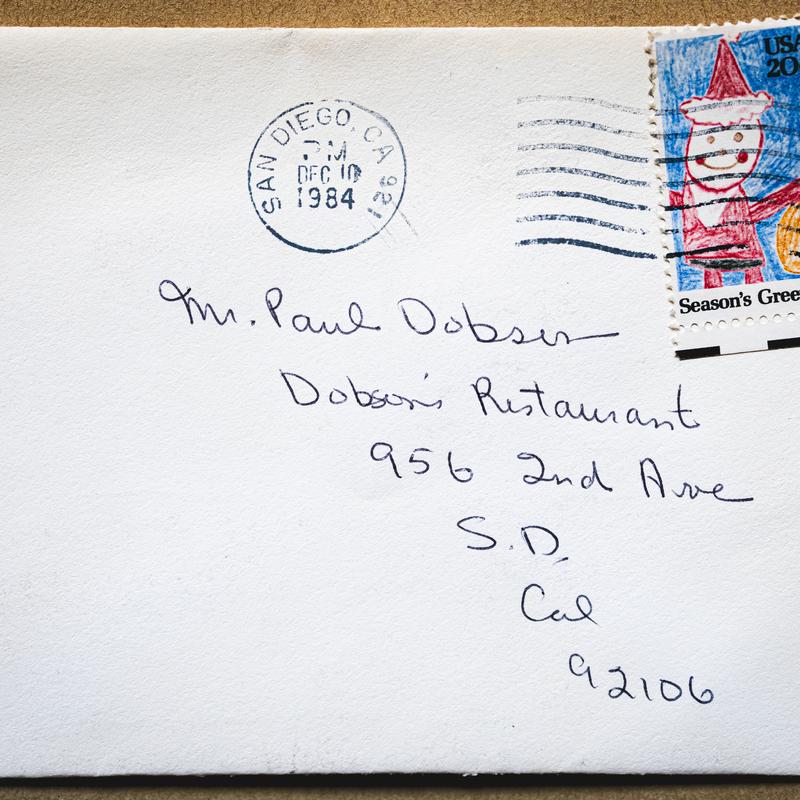 SAN DIEGO, CA 921
PM
DEC 10
1984
USA
20
Season's Gree
Mr. Paul Dobson
Dobson's Restaurant
956 2nd Ave
S.D.
Cal
92106